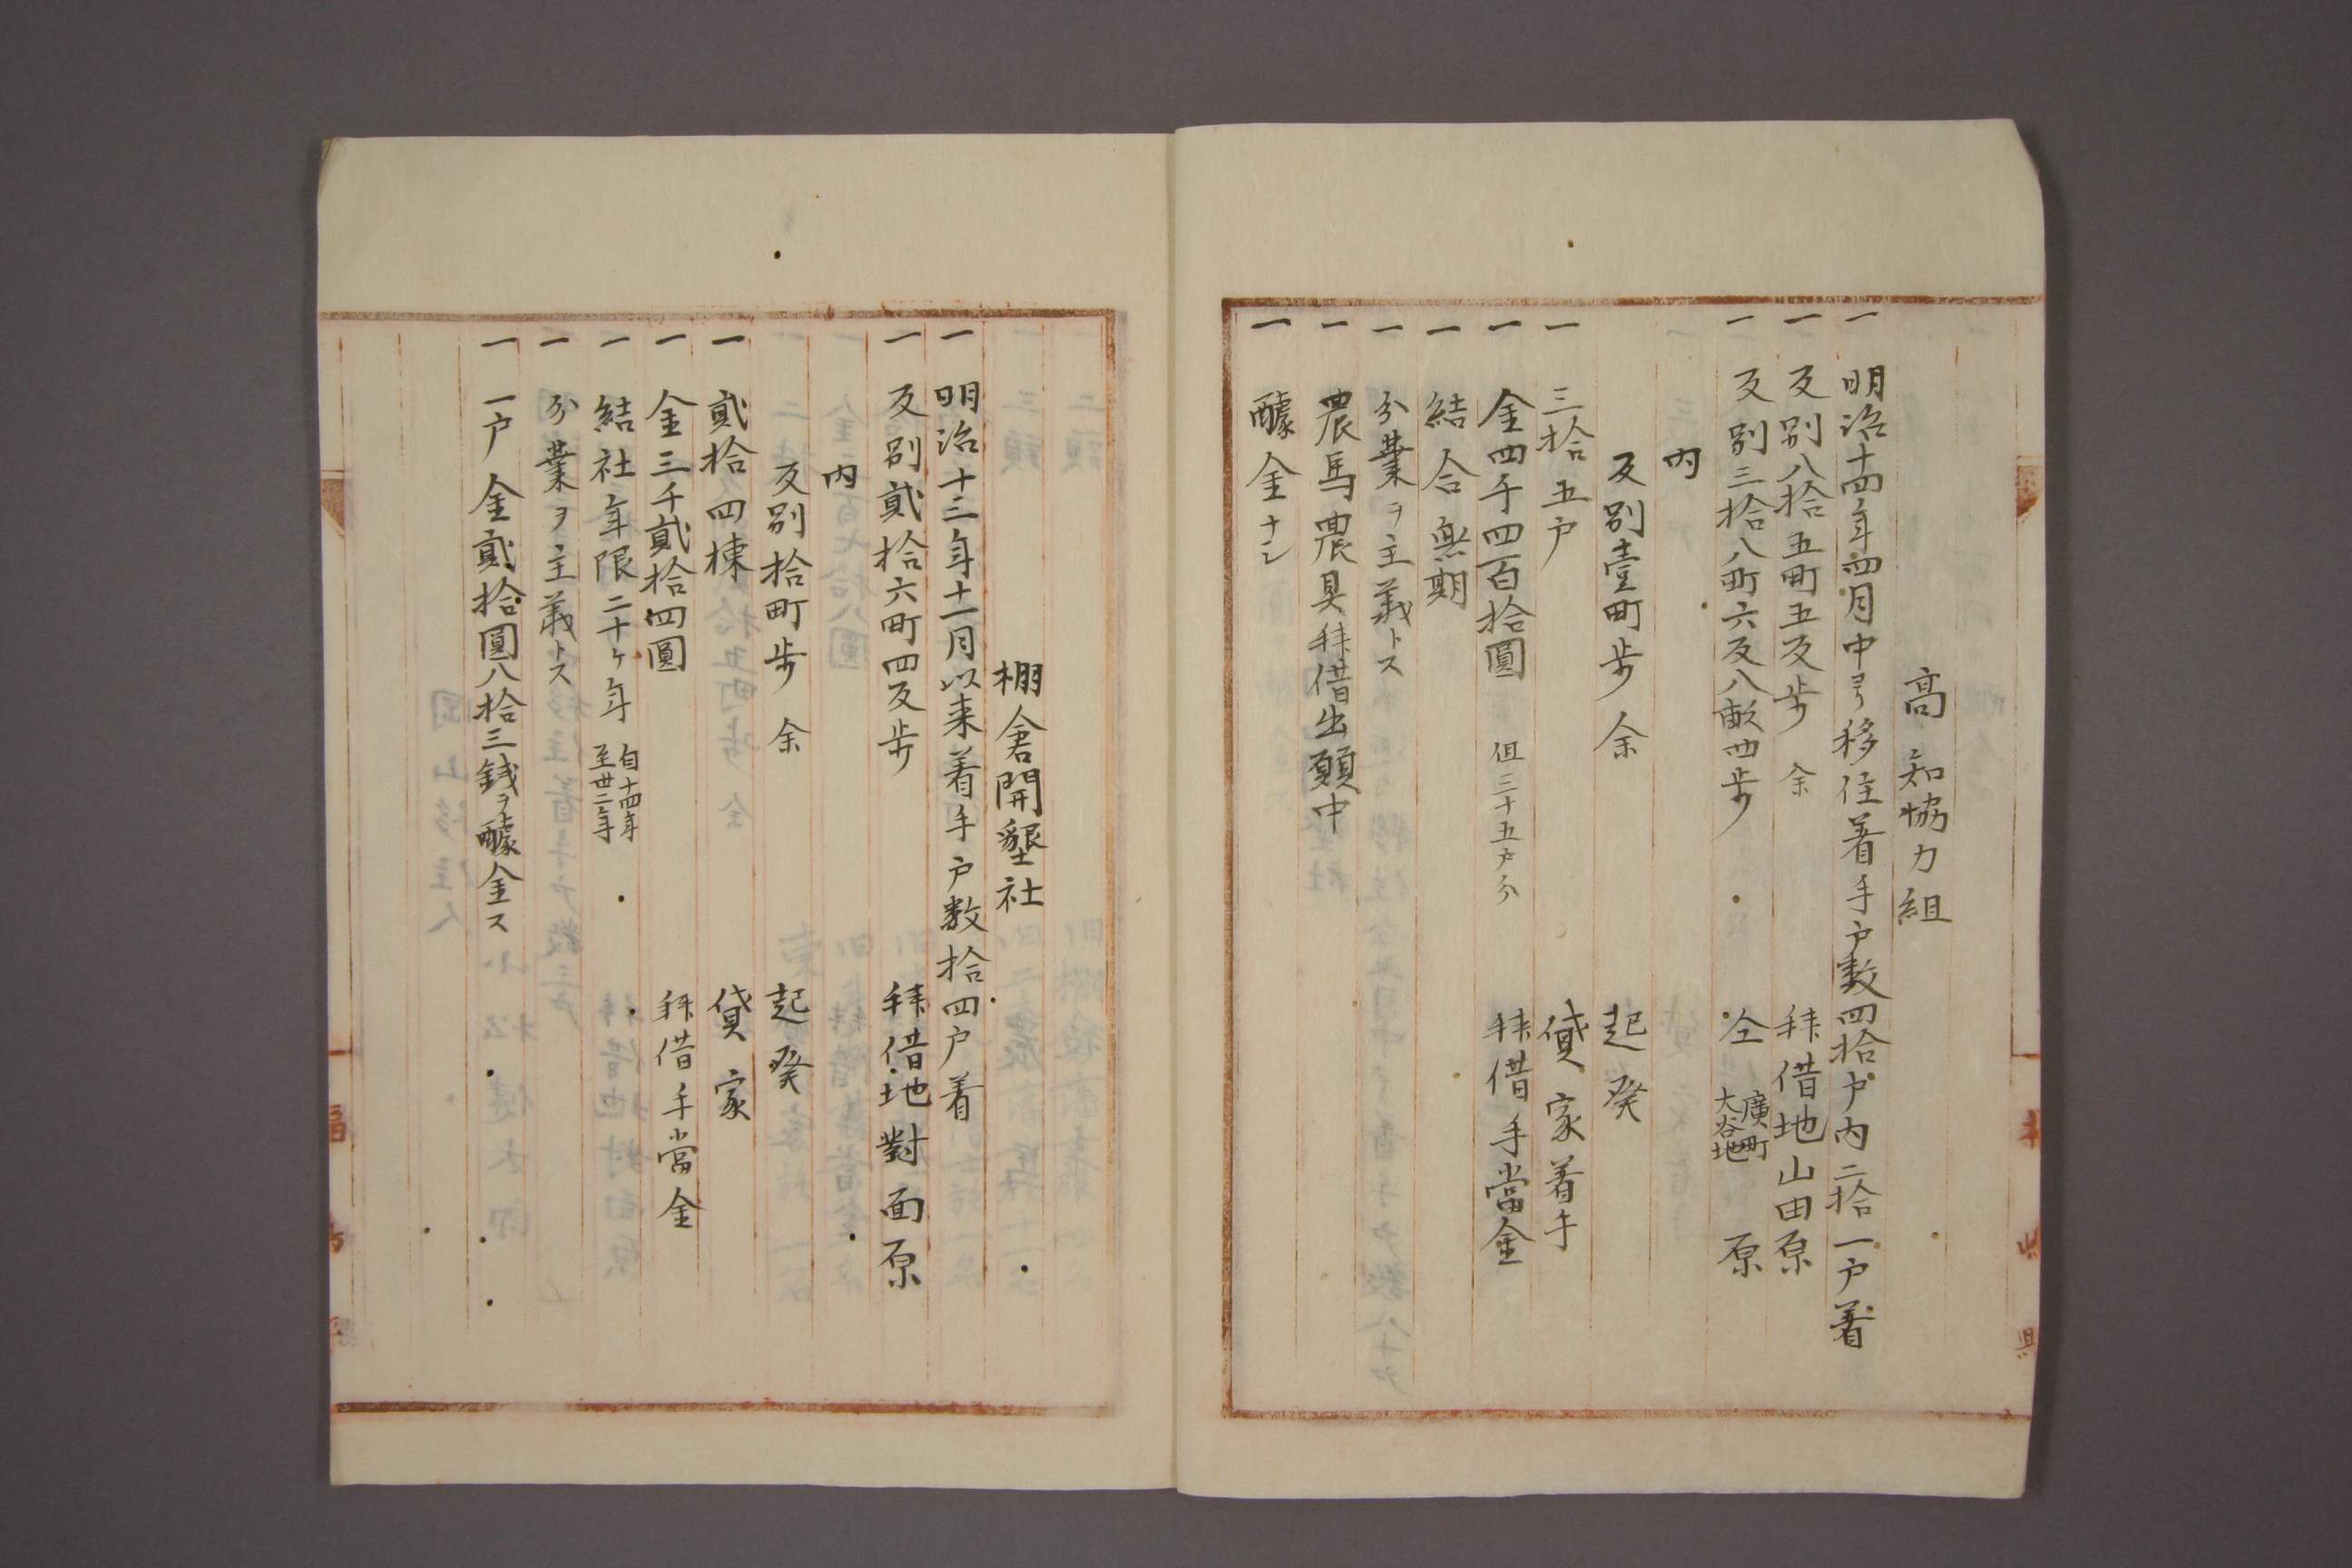 高知協力組
一 明治十四年四月中ヨリ移住着手戸数四拾戸内二拾一戸着
一 反別八拾五町五反歩余 拜借地山田原
一 反別三拾八町六反八畝廿四歩 仝 廣町大谷地原
内
反別壹町歩余 起發
一 三拾五戸 貸家着手
一 金四千四百拾圓 但三十五戸分 拜借手當金
一 結合無期
一 分業ヲ主義トス
一 農馬農具拜借出願中
一 醵金ナシ
棚倉開墾社
一 明治十三年十一月以来着手戸数拾四戸着
一 反別貳拾六町四反歩 拜借地對面原
内
反別拾町歩余 起發
一 貳拾四棟 貸家
一 金三千貳拾四圓 拜借手當金
一 結社年限二十ヶ年 自十四年至卅三年
一 分業ヲ主義トス
一 一戸金貳拾圓八拾三銭ヲ醵金ス